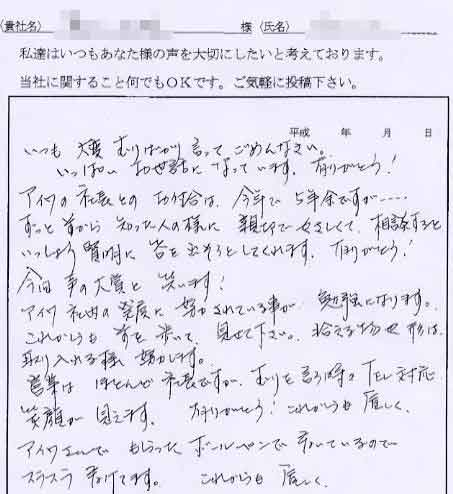 〈貴社名〉 様 〈氏名〉
私達はいつもあなた様の声を大切にしたいと考えております。
当社に関すること何でもOKです。ご気軽に投稿下さい。
平成 年 月 日
いつも 大変 むりばかり言って ごめんなさい。
いっぱい お世話に なっています。 ありがとう!
アイワの 社長との お付合は、今年で 5年余ですが・・・・
ずっと 昔から 知った人の様に 親切で やさしくて、相談すると
いっしょう賢明に 答を 出そうとしてくれます。 ありがとう!
今回 事の大賞と 笑います!
アイワ 社内の 発展に 努力されている事が 勉強になります。
これからも 前を 歩いて 見せて下さい。 拾える物は
取り入れる様 努力します。
営業は ほとんど 社長ですが、むりを 言う時の TEL 対応
笑顔が 見えます。 ありがとう! これからも 宜しく、
アイワさんで もらった ボールペンで 書いているので
スラスラ 書けてます。 これからも 宜しく。